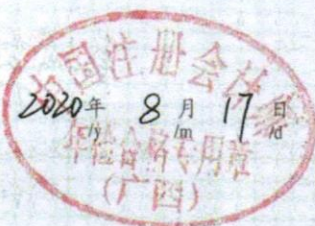 中国注册会计师
2020年 8月 17日
/y /m /d
年检合格专用章
(广西)